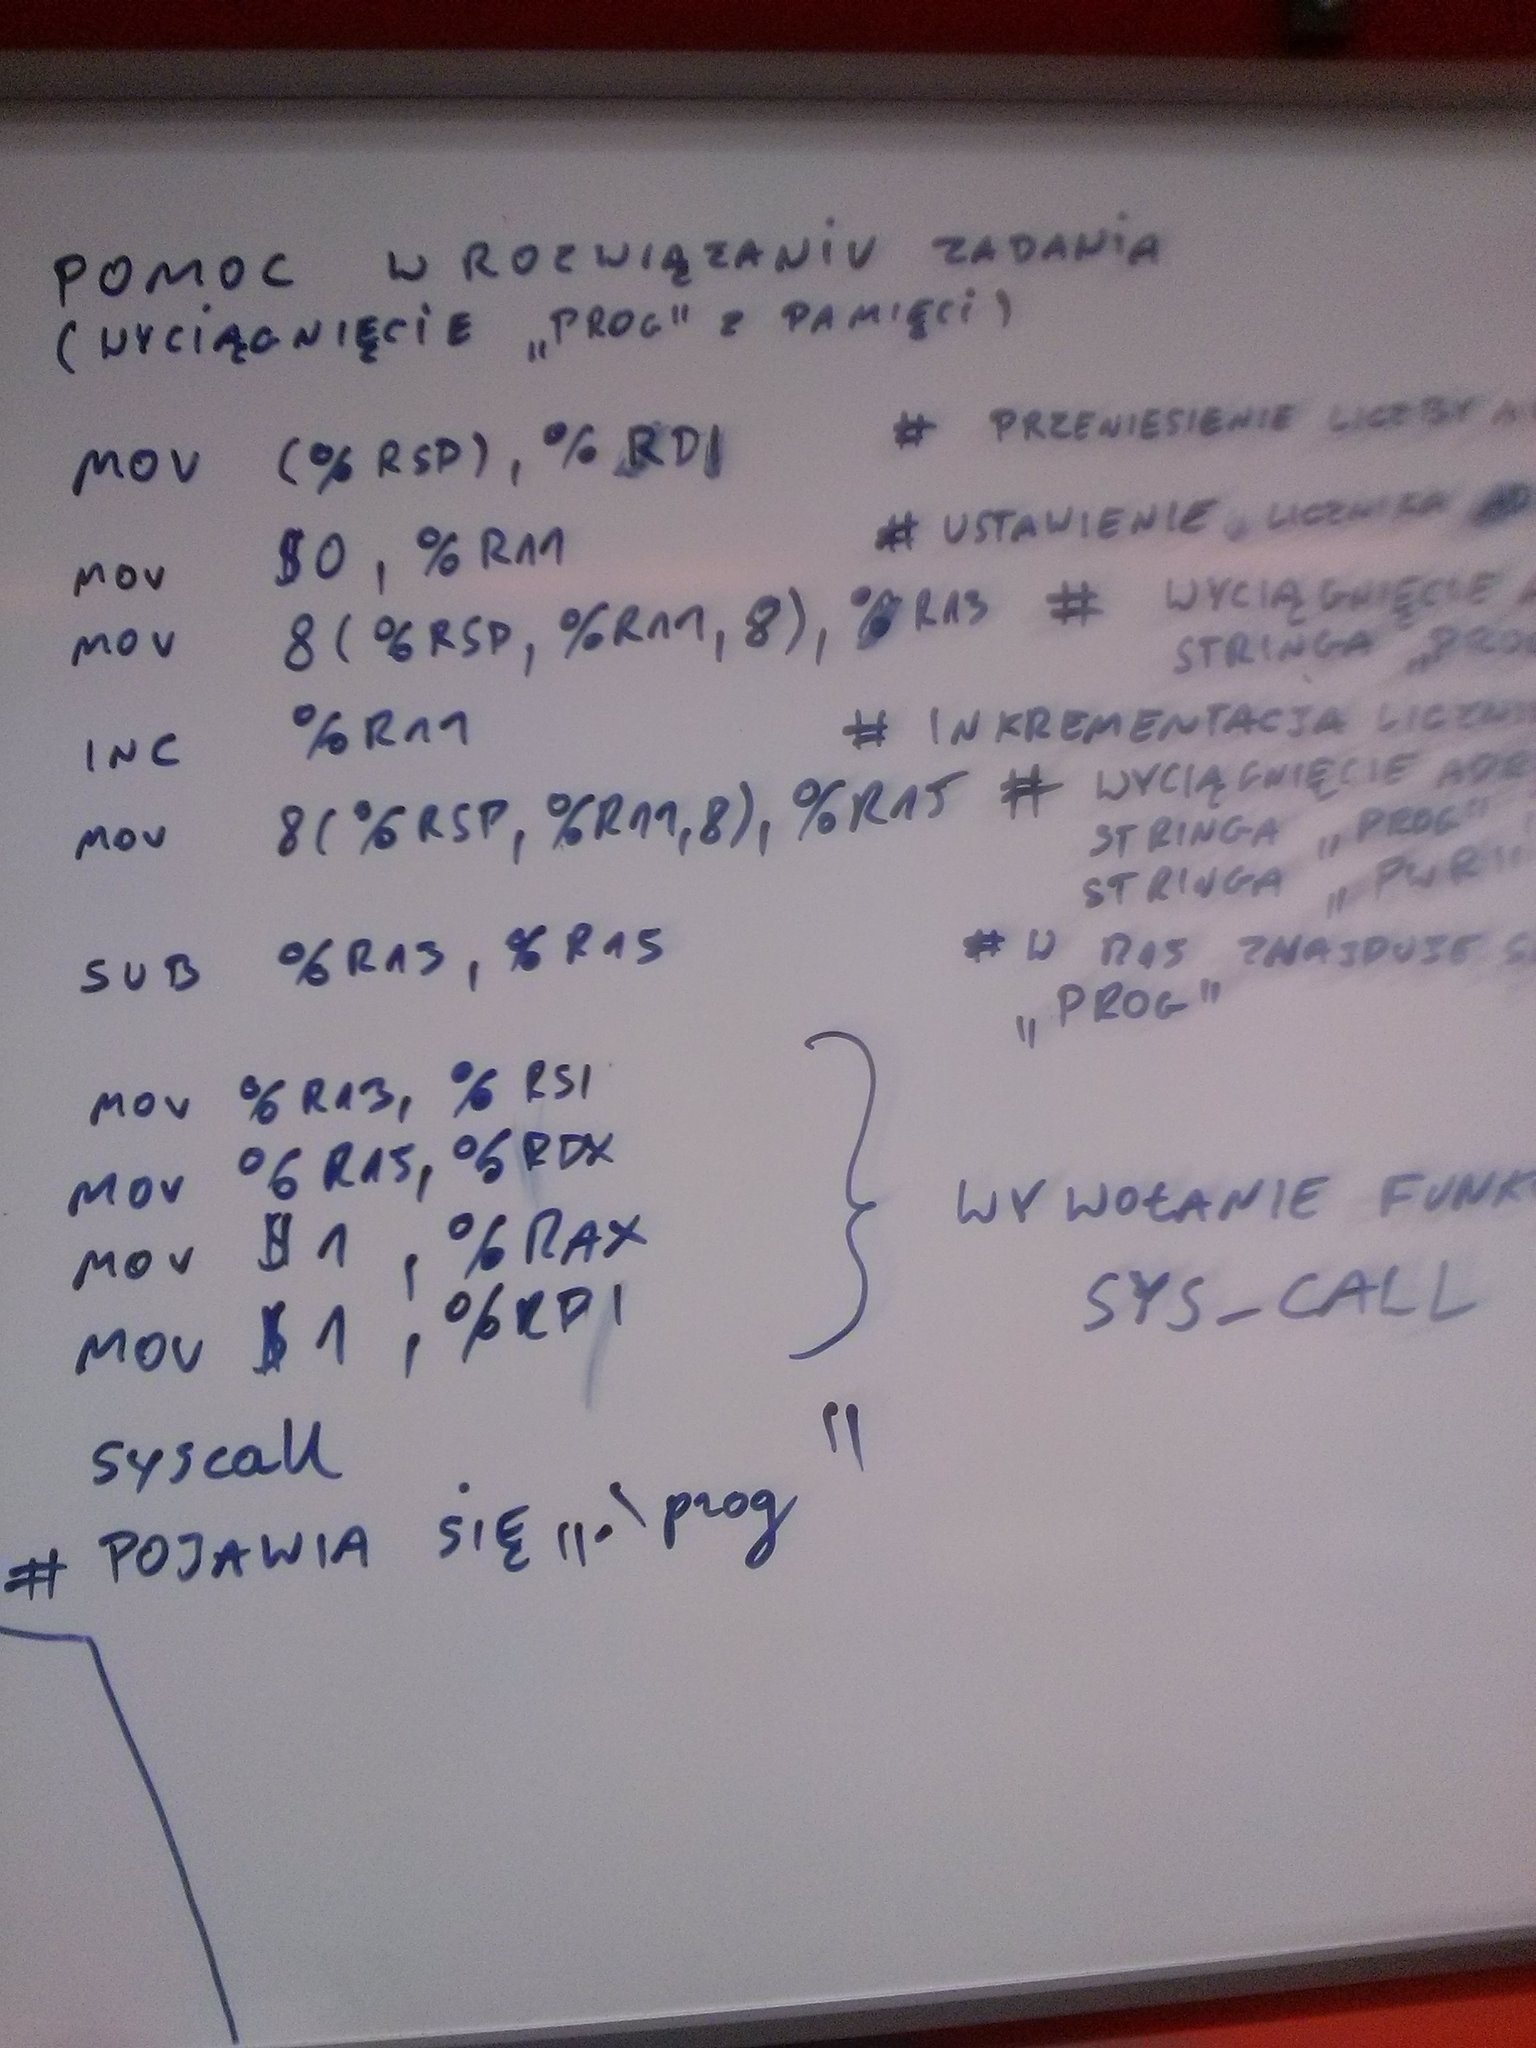 POMOC W ROZWIĄZANIU ZADANIA
(WYCIĄGNIĘCIE „PROG" Z PAMIĘCI)
MOV (%RSP), %RDI # PRZENIESIENIE LICZBY
MOV $0, %R11 # USTAWIENIE LICZNIKA
MOV 8(%RSP, %R11, 8), %R13 # WYCIĄGNIĘCIE A
STRINGA „PROG
INC %R11 # INKREMENTACJA LICZNI
MOV 8(%RSP, %R11, 8), %R15 # WYCIĄGNIĘCIE ADR
STRINGA „PROG"
STRINGA „PWR"
SUB %R13, %R15 # W R15 ZNAJDUJE S
„PROG"
MOV %R13, %RSI
MOV %R15, %RDX
MOV $1, %RAX
MOV $1, %RDI
WYWOŁANIE FUNK
SYS_CALL
syscall
# POJAWIA SIĘ „.\prog"